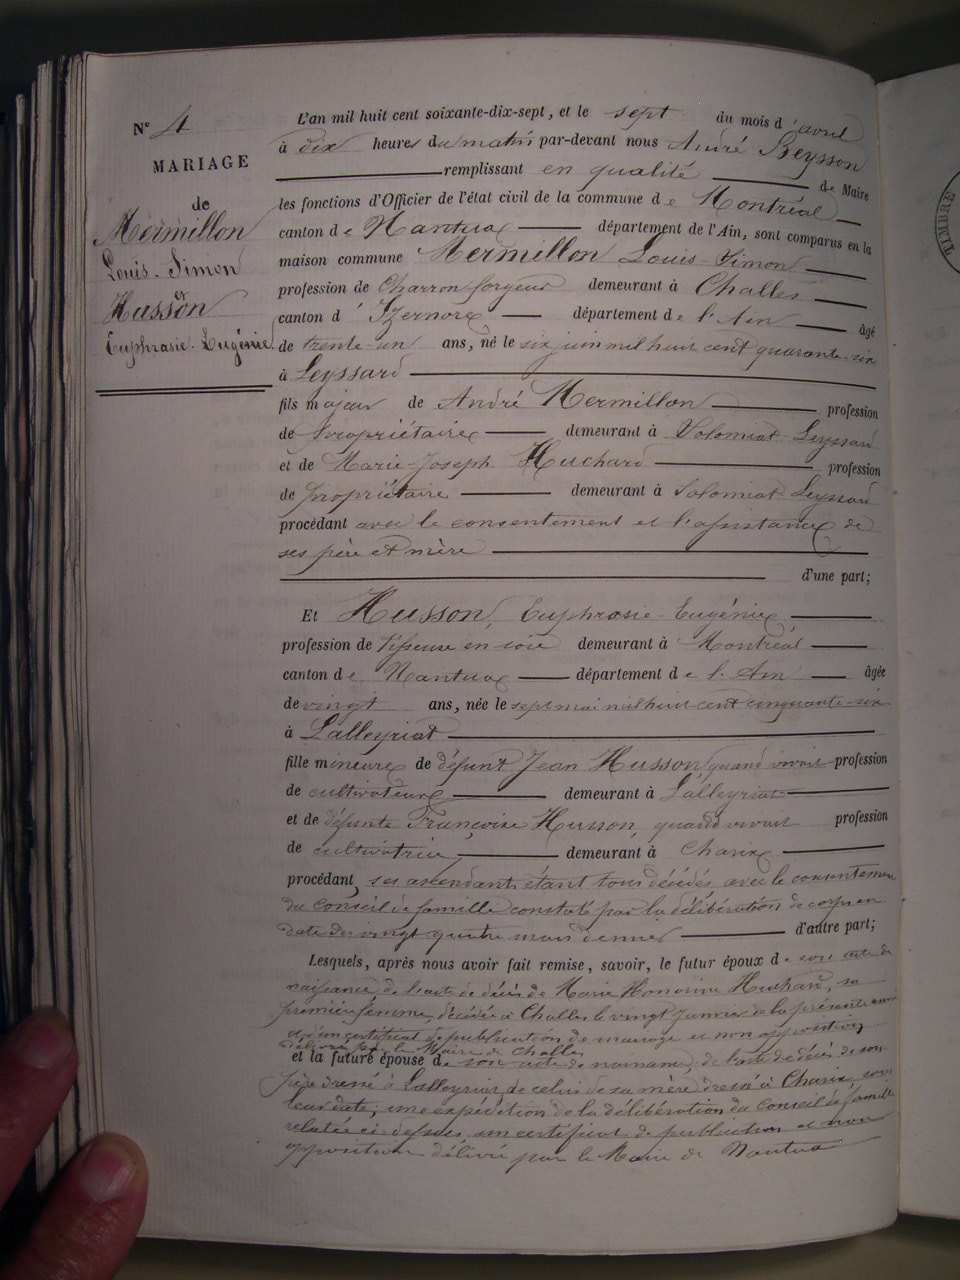 N° 4
MARIAGE
de
Mermillon
Louis-Simon
et
Husson
Euphrasie-Eugénie.
L'an mil huit cent soixante-dix-sept, et le sept du mois d'avril
à dix heures du matin par-devant nous André Beysson
remplissant en qualité de Maire
les fonctions d'Officier de l'état civil de la commune de Montréal
canton de Nantua département de l'Ain, sont comparus en la
maison commune Mermillon Louis-Simon
profession de Charron forgeur demeurant à Challes
canton d'Izernore département de l'Ain âgé
de trente-un ans, né le six juin mil huit cent quarante-six
à Leyssard
fils majeur de André Mermillon profession
de propriétaire demeurant à Solomiat Leyssard
et de Marie-Joseph Huchard profession
de propriétaire demeurant à Solomiat Leyssard
procédant avec le consentement et l'assistance de
ses père et mère
d'une part;
Et Husson, Euphrasie-Eugénie
profession de tisseuse en soie demeurant à Montréal
canton de Nantua département de l'Ain âgée
de vingt ans, née le sept mai mil huit cent cinquante-six
à Lalleyriat
fille mineure de défunt Jean Husson quand vivait profession
de cultivateur demeurant à Lalleyriat
et de défunte Françoise Husson, quand vivait profession
de cultivatrice demeurant à Charix
procédant, ses ascendants étant tous décédés avec le consentement
du Conseil de famille constaté par la délibération de corps en
date du vingt quatre mars dernier d'autre part;
Lesquels, après nous avoir fait remise, savoir, le futur époux de son acte de
naissance, de l'acte de décès de Marie Honorine Huchard, sa
première femme, décédée à Challes le vingt janvier de la présente année
et d'un certificat de publication de mariage et non opposition
délivré par le Maire de Challes
et la future épouse de son acte de naissance, de l'acte de décès de son
père dressé à Lalleyriat, de celui de sa mère dressé à Charix, sous
leur date, une expédition de la délibération du Conseil de famille
relatée ci-dessus, un certificat de publication et non
opposition délivré par le Maire de Nantua
TIMBRE